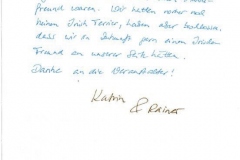 freund waren. Wir hatten vorher noch
keinen Irish Terrier, haben aber beschlossen,
dass wir in Zukunft gern einen Irischen
Freund an unserer Seite hätten.
Danke an die Veranstalter!
Katrin
& Rainer